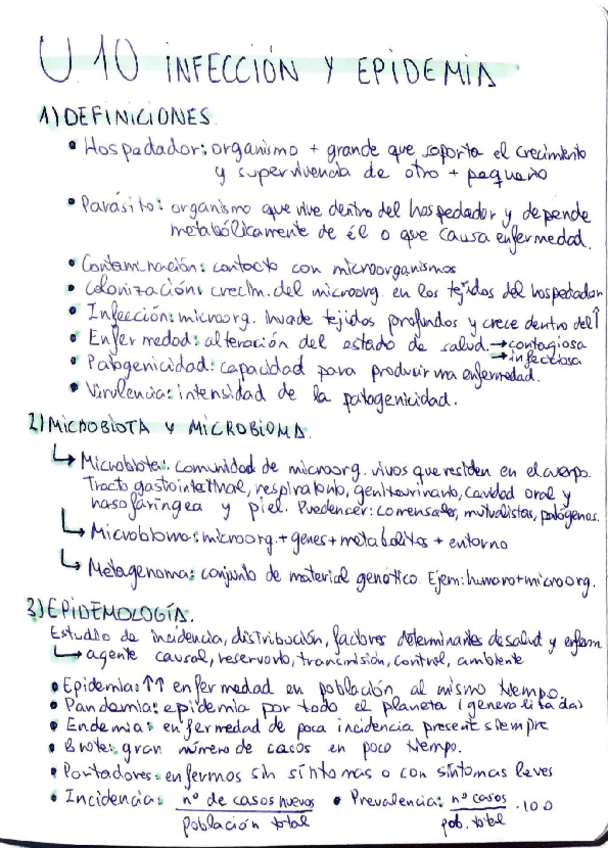 U.10 INFECCIÓN Y EPIDEMIA
1) DEFINICIONES.
• Hospedador: organismo + grande que soporta el crecimiento
y supervivencia de otro + pequeño
• Parásito: organismo que vive dentro del hospedador y depende
metabólicamente de él o que causa enfermedad.
• Contaminación: contacto con microorganismos
• Colonización: crecim. del microorg. en los tejidos del hospedador
• Infección: microorg. invade tejidos profundos y crece dentro del ↑
• Enfermedad: alteración del estado de salud. → contagiosa
→ infecciosa
• Patogenicidad: capacidad para producir una enfermedad.
• Virulencia: intensidad de la patogenicidad.
2) MICROBIOTA Y MICROBIOMA.
↳ Microbiota: comunidad de microorg. vivos que residen en el cuerpo.
Tracto gastrointestinal, respiratorio, genitourinario, cavidad oral y
nasofaríngea y piel. Pueden ser: comensales, mutualistas, patógenos.
↳ Microbioma: microorg. + genes + metabolitos + entorno
↳ Metagenoma: conjunto de material genético. Ejem: humano + microorg.
3) EPIDEMOLOGÍA.
Estudio de incidencia, distribución, factores determinantes de salud y enferm
↳ agente causal, reservorio, transmisión, control, ambiente
• Epidemia: ↑↑ enfermedad en población al mismo tiempo.
• Pandemia: epidemia por todo el planeta (generalizada)
• Endemia: enfermedad de poca incidencia present siempre
• Brote: gran número de casos en poco tiempo.
• Portadores: enfermos sin síntomas o con síntomas leves
• Incidencia: nº de casos nuevos / población total • Prevalencia: nº casos / pob. total · 100